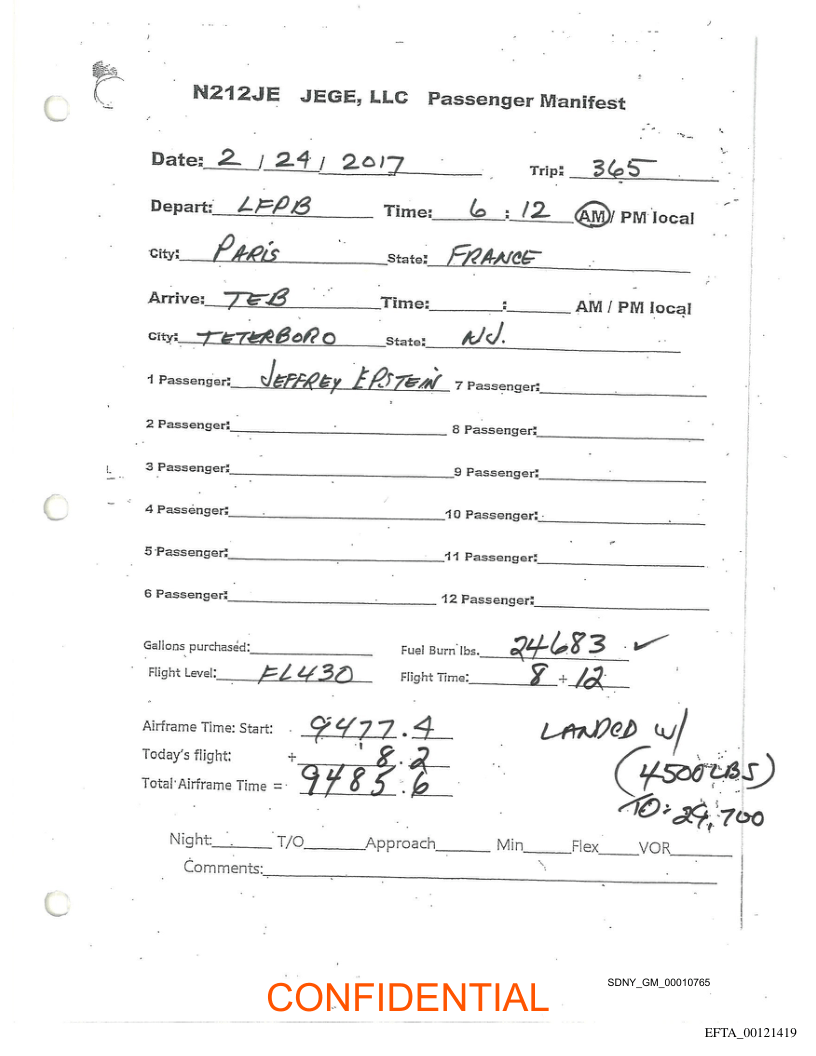 N212JE JEGE, LLC Passenger Manifest
Date: 2 / 24 / 2017 Trip: 365
Depart: LFPB Time: 6 : 12 AM / PM local
City: PARIS State: FRANCE
Arrive: TEB Time: : AM / PM local
City: TETERBORO State: NJ.
1 Passenger: JEFFREY EPSTEIN 7 Passenger:
2 Passenger: 8 Passenger:
3 Passenger: 9 Passenger:
4 Passenger: 10 Passenger:
5 Passenger: 11 Passenger:
6 Passenger: 12 Passenger:
Gallons purchased: Fuel Burn lbs. 24683 ✓
Flight Level: FL430 Flight Time: 8 + 12
Airframe Time: Start: 9477.4 LANDED W/
Today's flight: + 8.2 (4500 LBS)
Total Airframe Time = 9485.6 TO: 29,700
Night: T/O Approach Min Flex VOR
Comments:
CONFIDENTIAL
SDNY_GM_00010765
EFTA_00121419